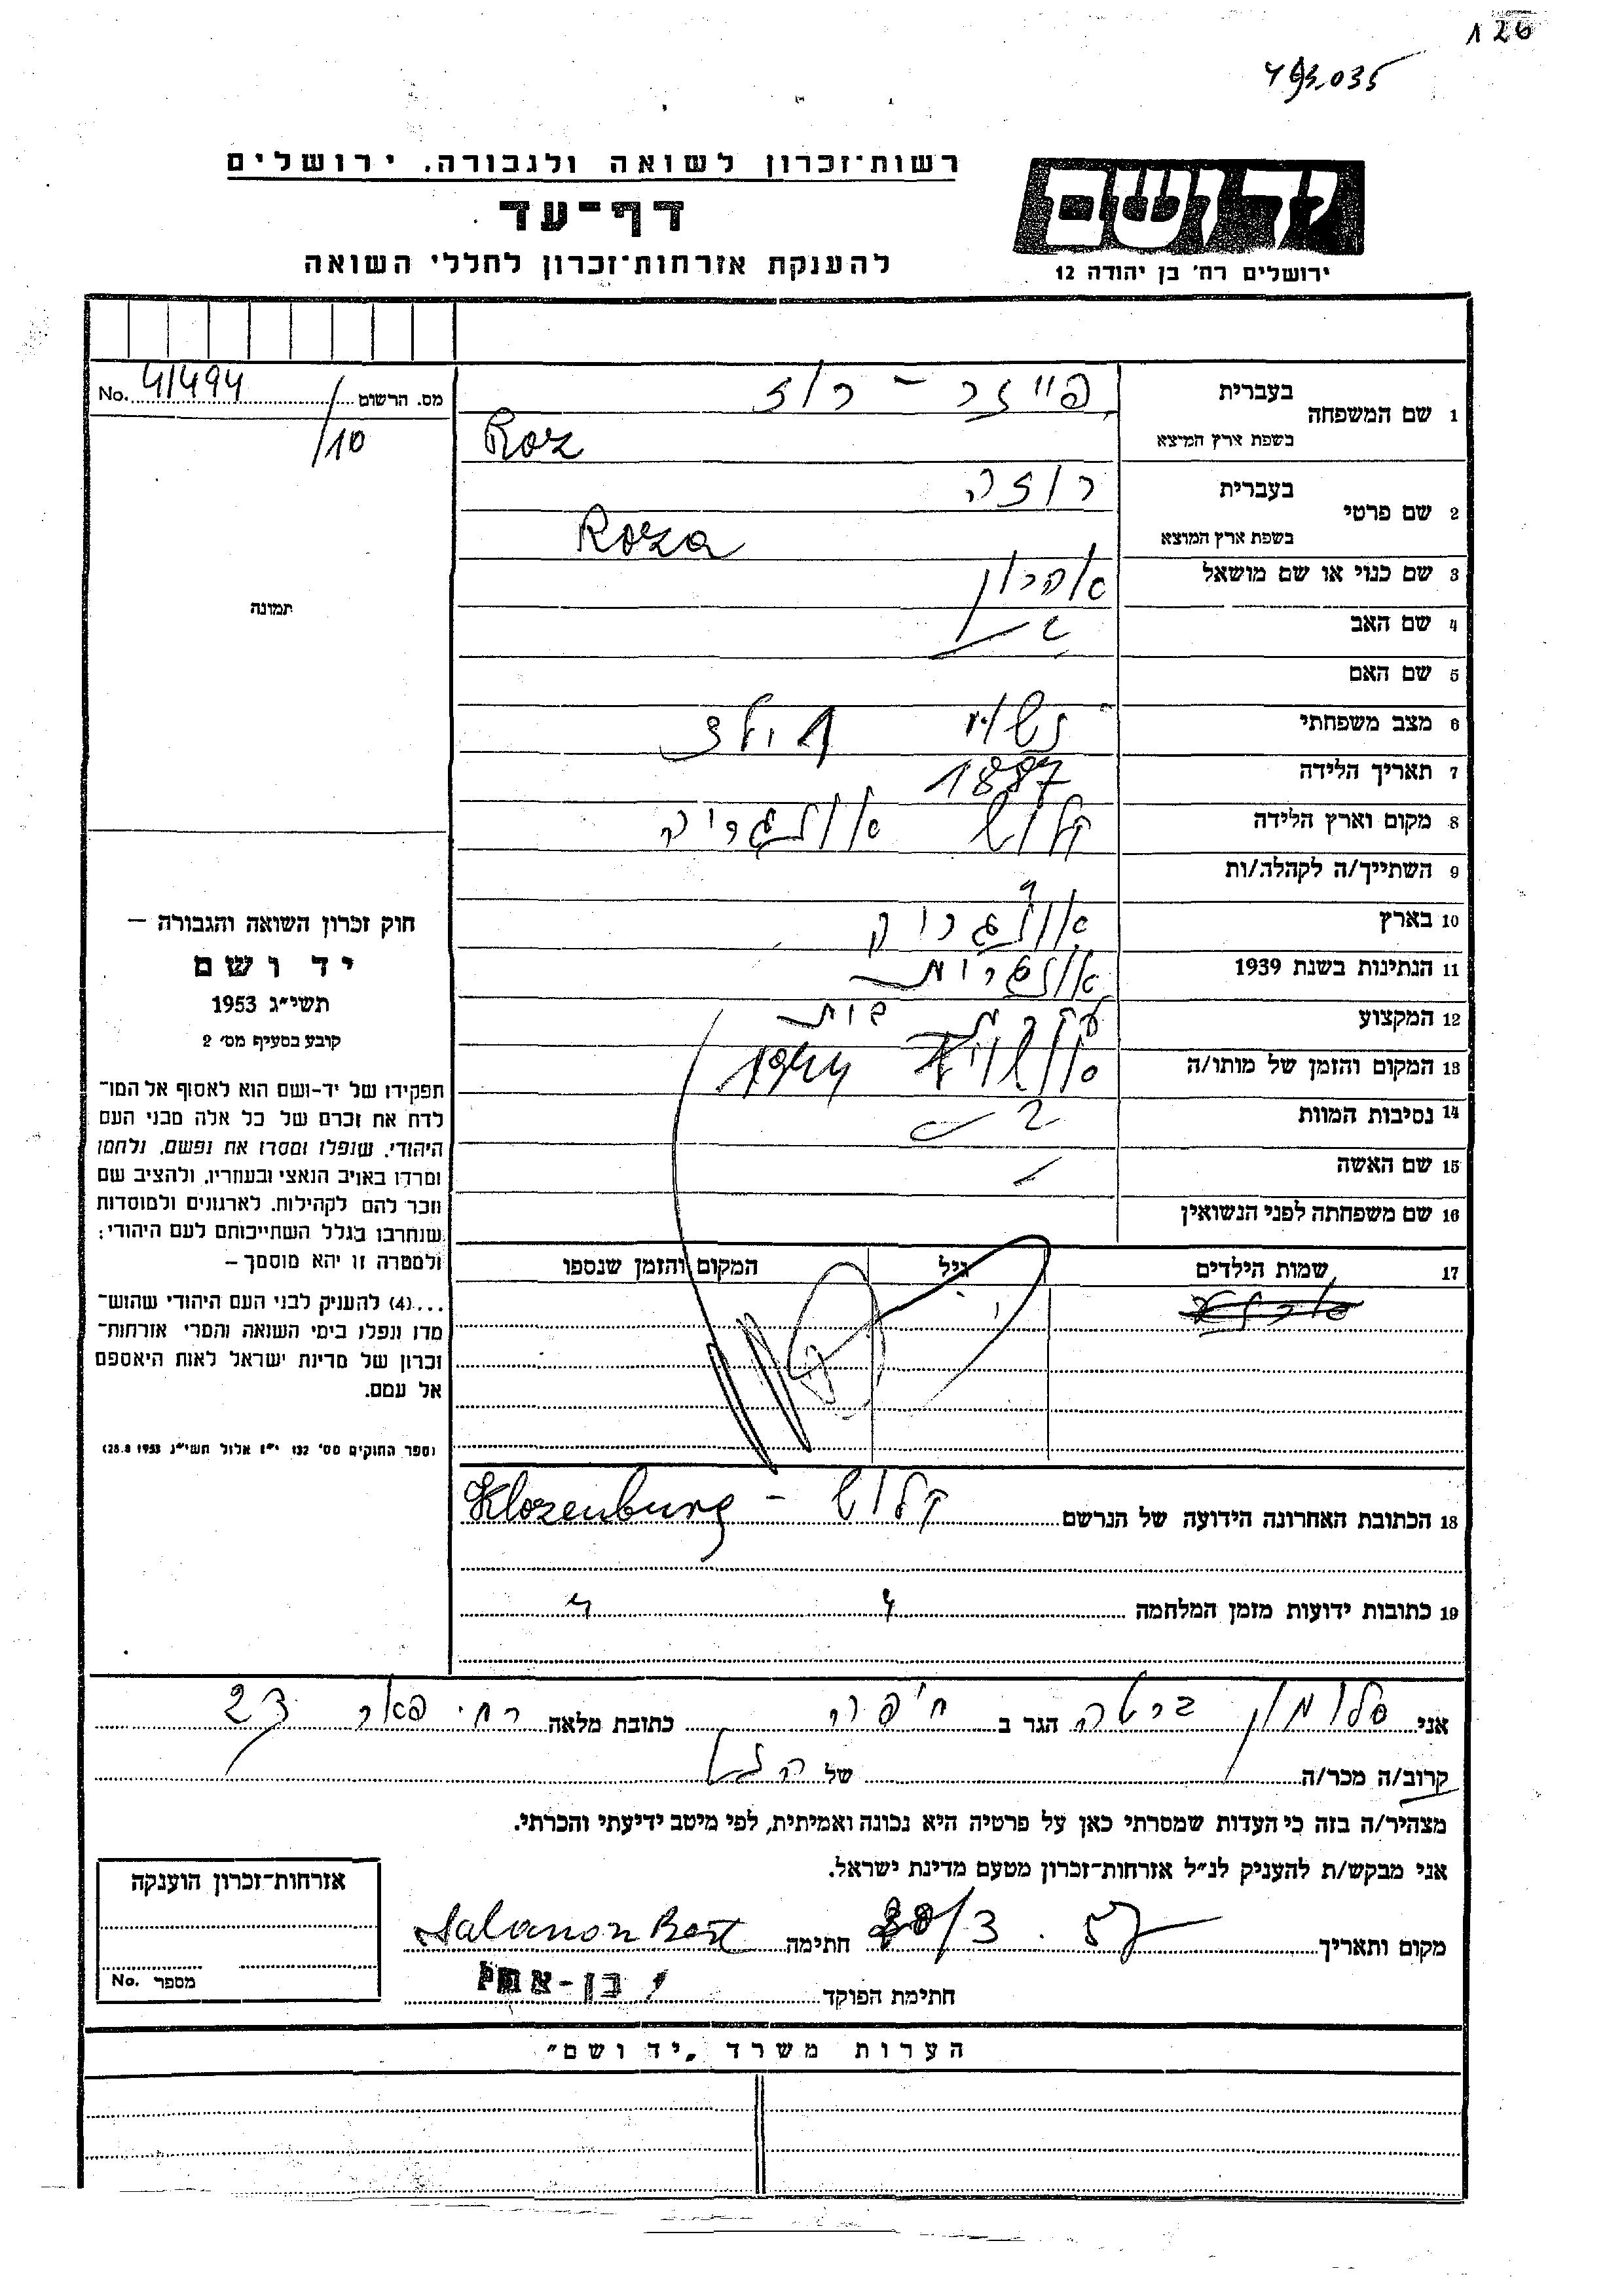 126
רשות־זכרון לשואה ולגבורה. ירושלים
דף־עד
להענקת אזרחות־זכרון לחללי השואה
יד ושם
ירושלים רח׳ בן יהודה 12
מס. הרשום 41494 No.
/10
תמונה
1 שם המשפחה
בעברית
רוז
בשפת ארץ המוצא
Roz
2 שם פרטי
בעברית רוזה
בשפת ארץ המוצא Roza
3 שם כנוי או שם מושאל
אהרון
4 שם האב
5 שם האם
6 מצב משפחתי נשוי
7 תאריך הלידה 1887
8 מקום וארץ הלידה קלוש אונגריה
9 השתייך/ה לקהלה/ות
10 בארץ אונגריה
11 הנתינות בשנת 1939 אונגרית
12 המקצוע עקרת בית
13 המקום והזמן של מותו/ה 1944
14 נסיבות המוות
15 שם האשה
16 שם משפחתה לפני הנשואין
17 שמות הילדים גיל המקום והזמן שנספו
חוק זכרון השואה והגבורה —
יד ושם
תשי״ג 1953
קובע בסעיף מס׳ 2
תפקידו של יד-ושם הוא לאסוף אל המו־
לדת את זכרם של כל אלה מבני העם
היהודי, שנפלו ומסרו את נפשם, נלחמו
ומרדו באויב הנאצי ובעוזריו, ולהציב שם
וזכר להם לקהילות, לארגונים ולמוסדות
שנחרבו בגלל השתייכותם לעם היהודי;
ולמטרה זו יהא מוסמך —
...(4) להעניק לבני העם היהודי שהוש־
מדו ונפלו בימי השואה והמרי אזרחות־
זכרון של מדינת ישראל לאות היאספם
אל עמם.
(ספר החוקים מס׳ 132 י״ז אלול תשי״ג 28.8.1953)
18 הכתובת האחרונה הידועה של הנרשם קלוש - Klozenburg
19 כתובות ידועות מזמן המלחמה
אני סלומון ברטה הגר ב חיפה כתובת מלאה רח׳ 23
קרוב/ה מכר/ה של
מצהיר/ה בזה כי העדות שמסרתי כאן על פרטיה היא נכונה ואמיתית, לפי מיטב ידיעתי והכרתי.
אני מבקש/ת להעניק לנ״ל אזרחות־זכרון מטעם מדינת ישראל.
מקום ותאריך /3.57 חתימה
חתימת הפוקד
אזרחות־זכרון הוענקה
מספר No.
הערות משרד „יד ושם״